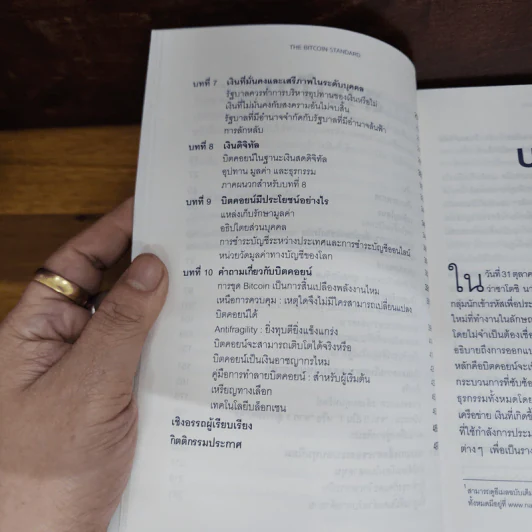 THE BITCOIN STANDARD
บทที่ 7 เงินที่มั่นคงและเสรีภาพในระดับบุคคล
รัฐบาลควรทำการบริหารอุปทานของเงินหรือไม่
เงินที่ไม่มั่นคงกับสงครามอันไม่จบสิ้น
รัฐบาลที่มีอำนาจจำกัดกับรัฐบาลที่มีอำนาจล้นฟ้า
การลักหลับ
บทที่ 8 เงินดิจิทัล
บิตคอยน์ในฐานะเงินสดดิจิทัล
อุปทาน มูลค่า และธุรกรรม
ภาคผนวกสำหรับบทที่ 8
บทที่ 9 บิตคอยน์มีประโยชน์อย่างไร
แหล่งเก็บรักษามูลค่า
อธิปไตยส่วนบุคคล
การชำระบัญชีระหว่างประเทศและการชำระบัญชีออนไลน์
หน่วยวัดมูลค่าทางบัญชีของโลก
บทที่ 10 คำถามเกี่ยวกับบิตคอยน์
การขุด Bitcoin เป็นการสิ้นเปลืองพลังงานไหม
เหนือการควบคุม : เหตุใดจึงไม่มีใครสามารถเปลี่ยนแปลง
บิตคอยน์ได้
Antifragility : ยิ่งทุบตียิ่งแข็งแกร่ง
บิตคอยน์จะสามารถเติบโตได้จริงหรือ
บิตคอยน์เป็นเงินอาชญากรไหม
คู่มือการทำลายบิตคอยน์ : สำหรับผู้เริ่มต้น
เหรียญทางเลือก
เทคโนโลยีบล็อกเชน
เชิงอรรถผู้เรียบเรียง
กิตติกรรมประกาศ
ใน วันที่ 31 ตุลาค
ว่าซาโตชิ นา
กลุ่มนักเข้ารหัสเพื่อประ
ใหม่ที่ทำงานในลักษณ
โดยไม่จำเป็นต้องเชื่อ
อธิบายถึงการออกแบ
หลักคือบิตคอยน์จะเ
กระบวนการที่ซับซ้อ
ธุรกรรมทั้งหมดโดย
เครือข่าย เงินที่เกิดขึ้
ที่ใช้กำลังการประม
ต่างๆ เพื่อเป็นราง
1 สามารถดูอีเมลฉบับเต็ม
ทั้งหมดมีอยู่ที่ www.na